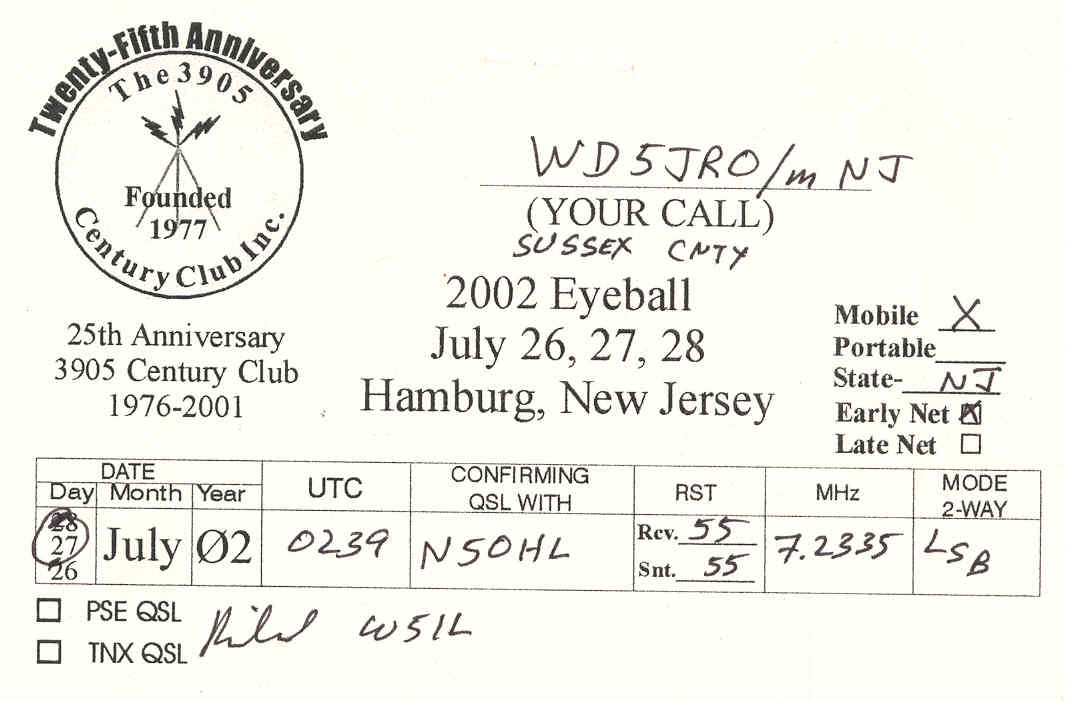 Twenty-Fifth Anniversary
The 3905
Founded
1977
Century Club Inc.
25th Anniversary
3905 Century Club
1976-2001
WD5JRO/m NJ
(YOUR CALL)
SUSSEX CNTY
2002 Eyeball
July 26, 27, 28
Hamburg, New Jersey
Mobile X
Portable
State- NJ
Early Net X
Late Net
DATE
Day Month Year
UTC
CONFIRMING
QSL WITH
RST
MHz
MODE
2-WAY
28
27
26
July Ø2
0239
N5OHL
Rcv. 55
Snt. 55
7.2335
LSB
PSE QSL
TNX QSL
W5IL